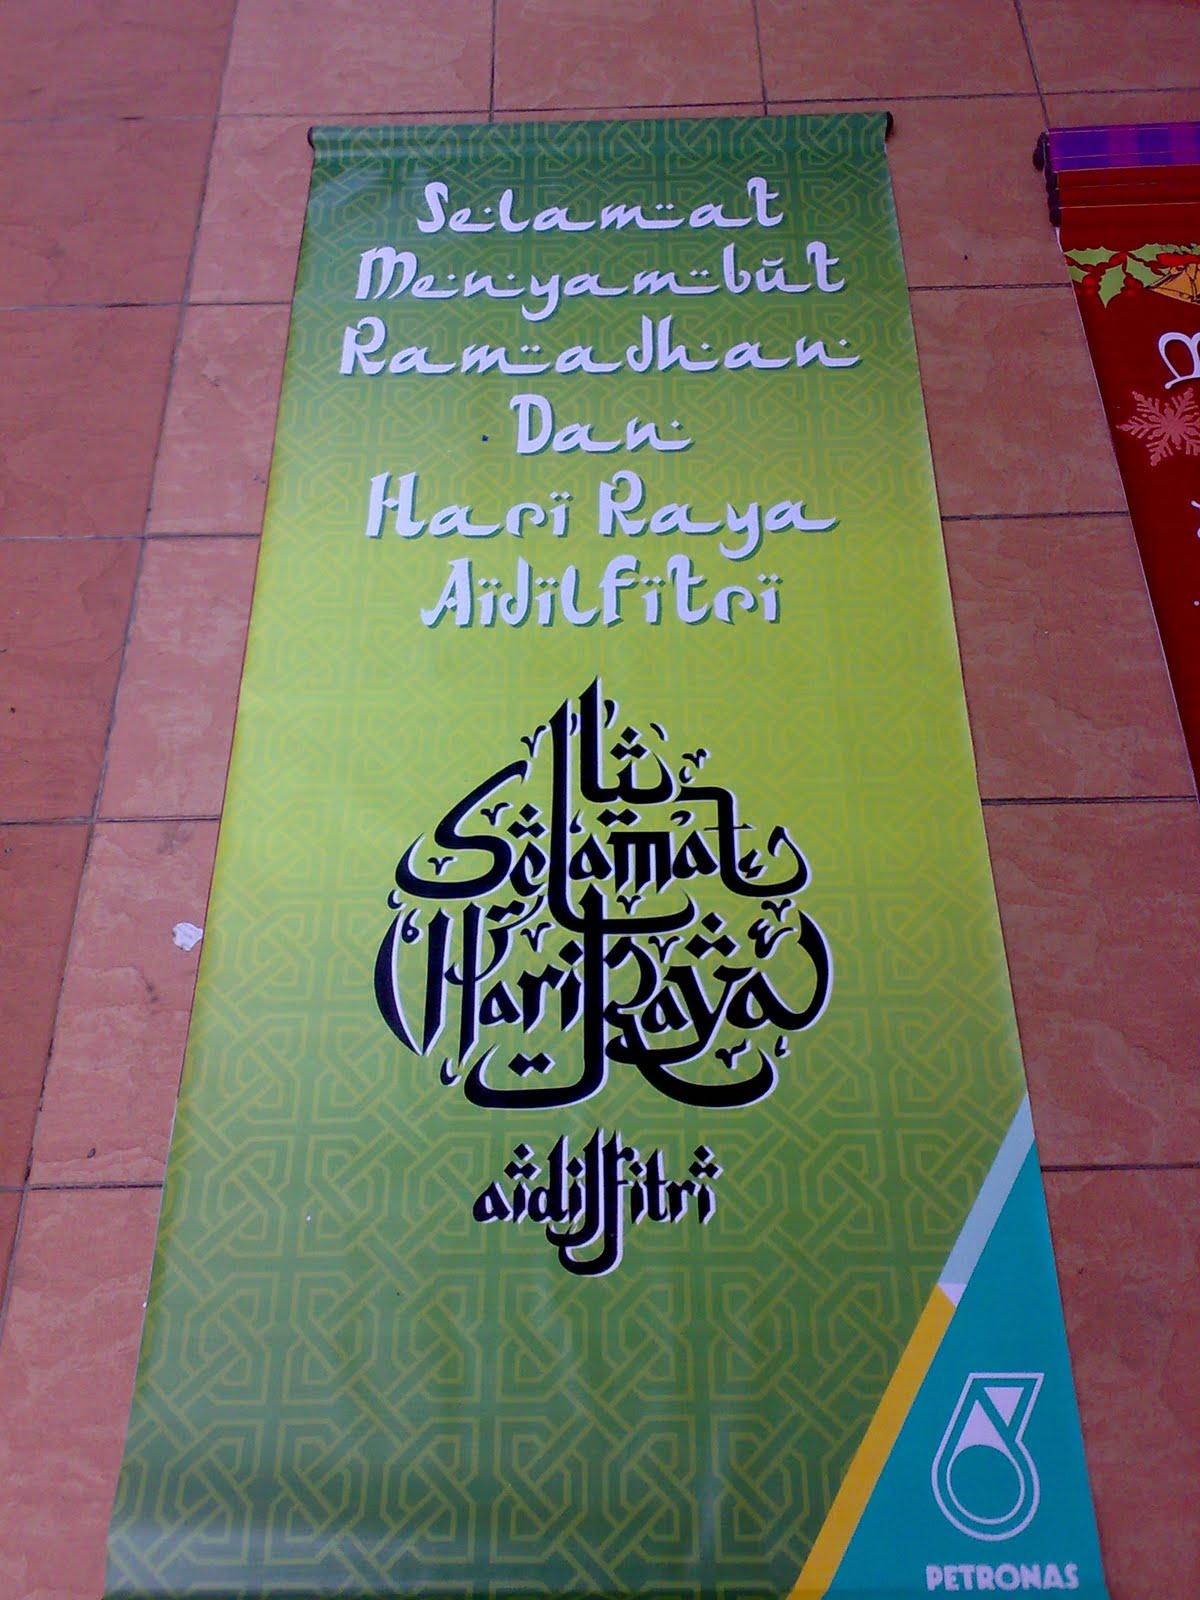 Selamat
Menyambut
Ramadhan
Dan
Hari Raya
Aidilfitri
Selamat
Hari Raya
aidilfitri
PETRONAS